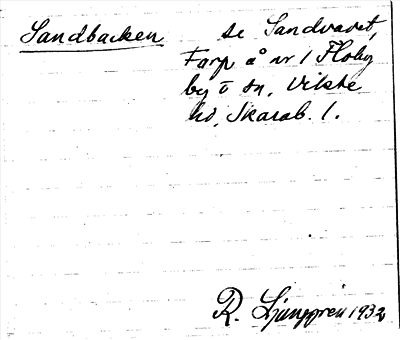 Sandbacken se Sandvadet,
Torp å nr 1 Floby
by o sn, Vilske
hd, Skarab. l.
R. Ljunggren 1932